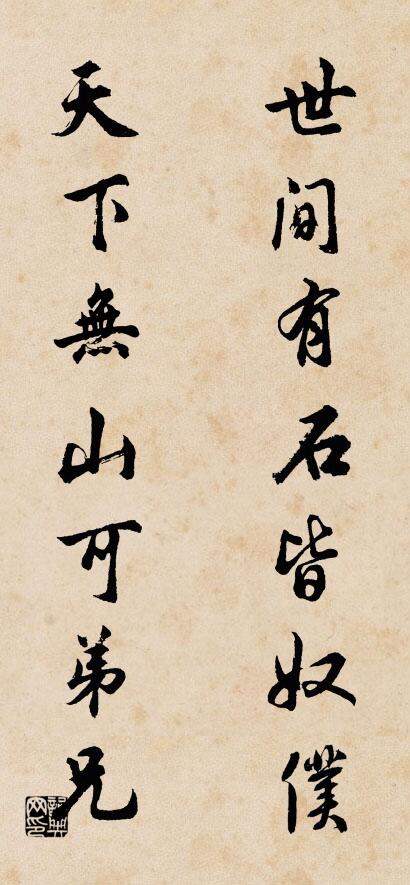 世間有石皆奴僕
天下無山可弟兄